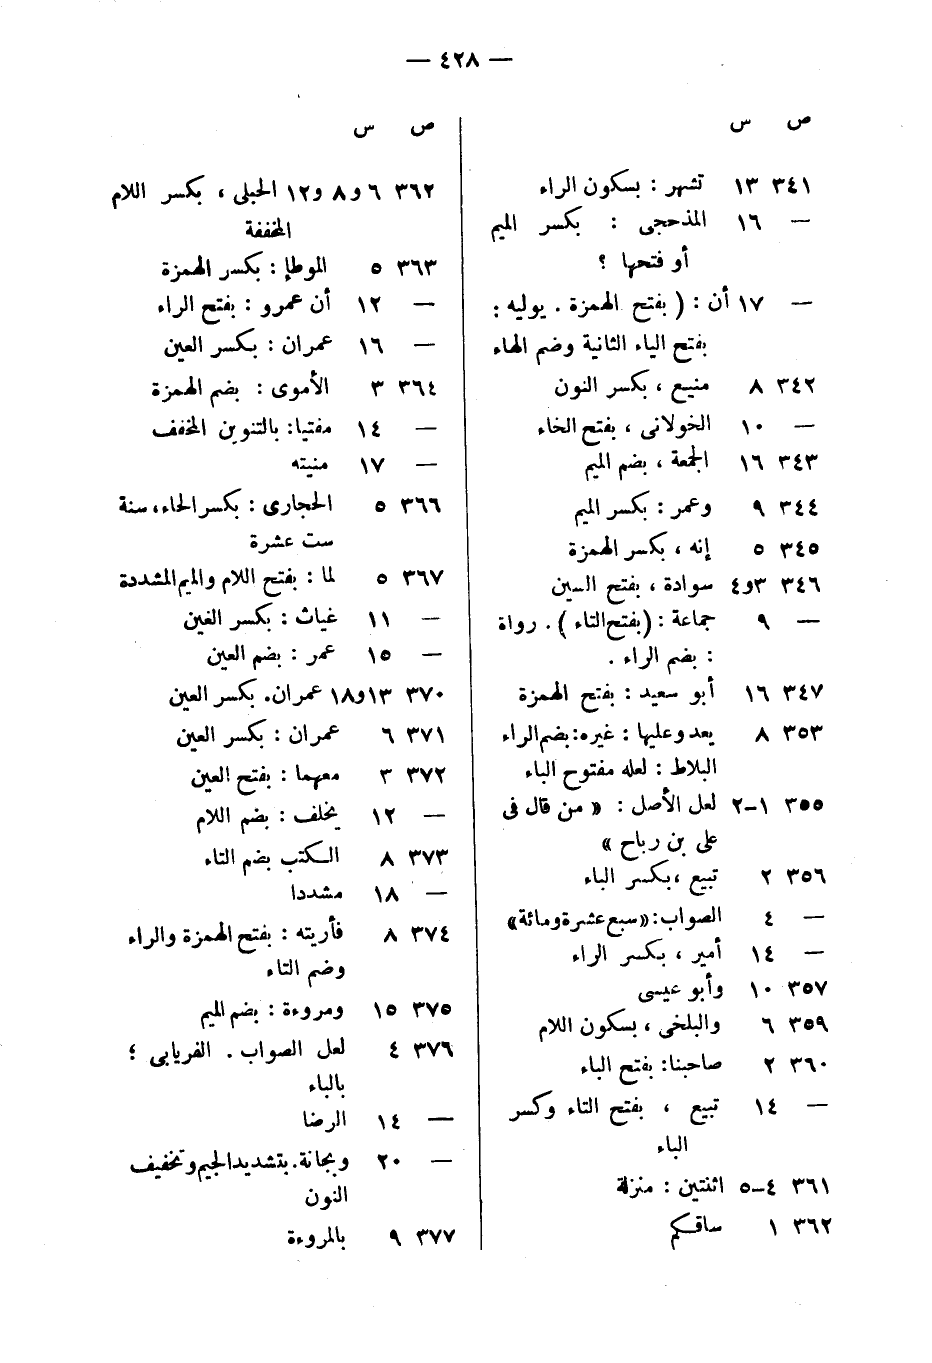 — ٤٢٨ —
ص س
٣٤١ ١٣ تشهر : بسكون الراء
— ١٦ المذحجى : بكسر الميم
أو فتحها ؟
— ١٧ أن : ( بفتح الهمزة . يوليه :
بفتح الياء الثانية وضم الهاء
٣٤٢ ٨ منيع ، بكسر النون
— ١٠ الخولانى ، بفتح الخاء
٣٤٣ ١٦ الجمعة ، بضم الميم
٣٤٤ ٩ وعمر : بكسر الميم
٣٤٥ ٥ إنه ، بكسر الهمزة
٣٤٦ ٣و٤ سوادة ، بفتح السين
— ٩ جماعة : (بفتح التاء ) . رواة
: بضم الراء .
٣٤٧ ١٦ أبو سعيد : بفتح الهمزة
٣٥٣ ٨ يعد وعليها : غيره: بضم الراء
البلاط : لعله مفتوح الباء
٣٥٥ ١–٢ لعل الأصل : « من قال فى
على بن رباح »
٣٥٦ ٢ تبيع ، بكسر الباء
— ٤ الصواب: «سبع عشرة ومائة»
— ١٤ أمير ، بكسر الراء
٣٥٧ ١٠ وأبو عيسى
٣٥٩ ٦ والبلخى ، بسكون اللام
٣٦٠ ٢ صاحبنا: بفتح الباء
— ١٤ تبيع ، بفتح التاء وكسر
الباء
٣٦١ ٤–٥ اثنتين : منزلة
٣٦٢ ١ ساقكم
ص س
٣٦٢ ٦ و٨ و١٢ الحبلى ، بكسر اللام
المخففة
٣٦٣ ٥ الموطإ : بكسر الهمزة
— ١٢ أن عمرو : بفتح الراء
— ١٦ عمران : بكسر العين
٣٦٤ ٣ الأموى : بضم الهمزة
— ١٤ مفتيا: بالتنوين المخفف
— ١٧ منيته
٣٦٦ ٥ الحجارى : بكسر الحاء، سنة
ست عشرة
٣٦٧ ٥ لما : بفتح اللام والميم المشددة
— ١١ غياث : بكسر الغين
— ١٥ عمر : بضم العين
٣٧٠ ١٣و١٨ عمران. بكسر العين
٣٧١ ٦ عمران : بكسر العين
٣٧٢ ٣ معهما : بفتح العين
— ١٢ يخلف : بضم اللام
٣٧٣ ٨ الكتب بضم التاء
— ١٨ مشددا
٣٧٤ ٨ فأريته : بفتح الهمزة والراء
وضم التاء
٣٧٥ ١٥ ومروءة : بضم الميم
٣٧٦ ٤ لعل الصواب . الفريابى ؛
بالباء
— ١٤ الرضا
— ٢٠ وبجانة. بتشديد الجيم وتخفيف
النون
٣٧٧ ٩ بالمروءة